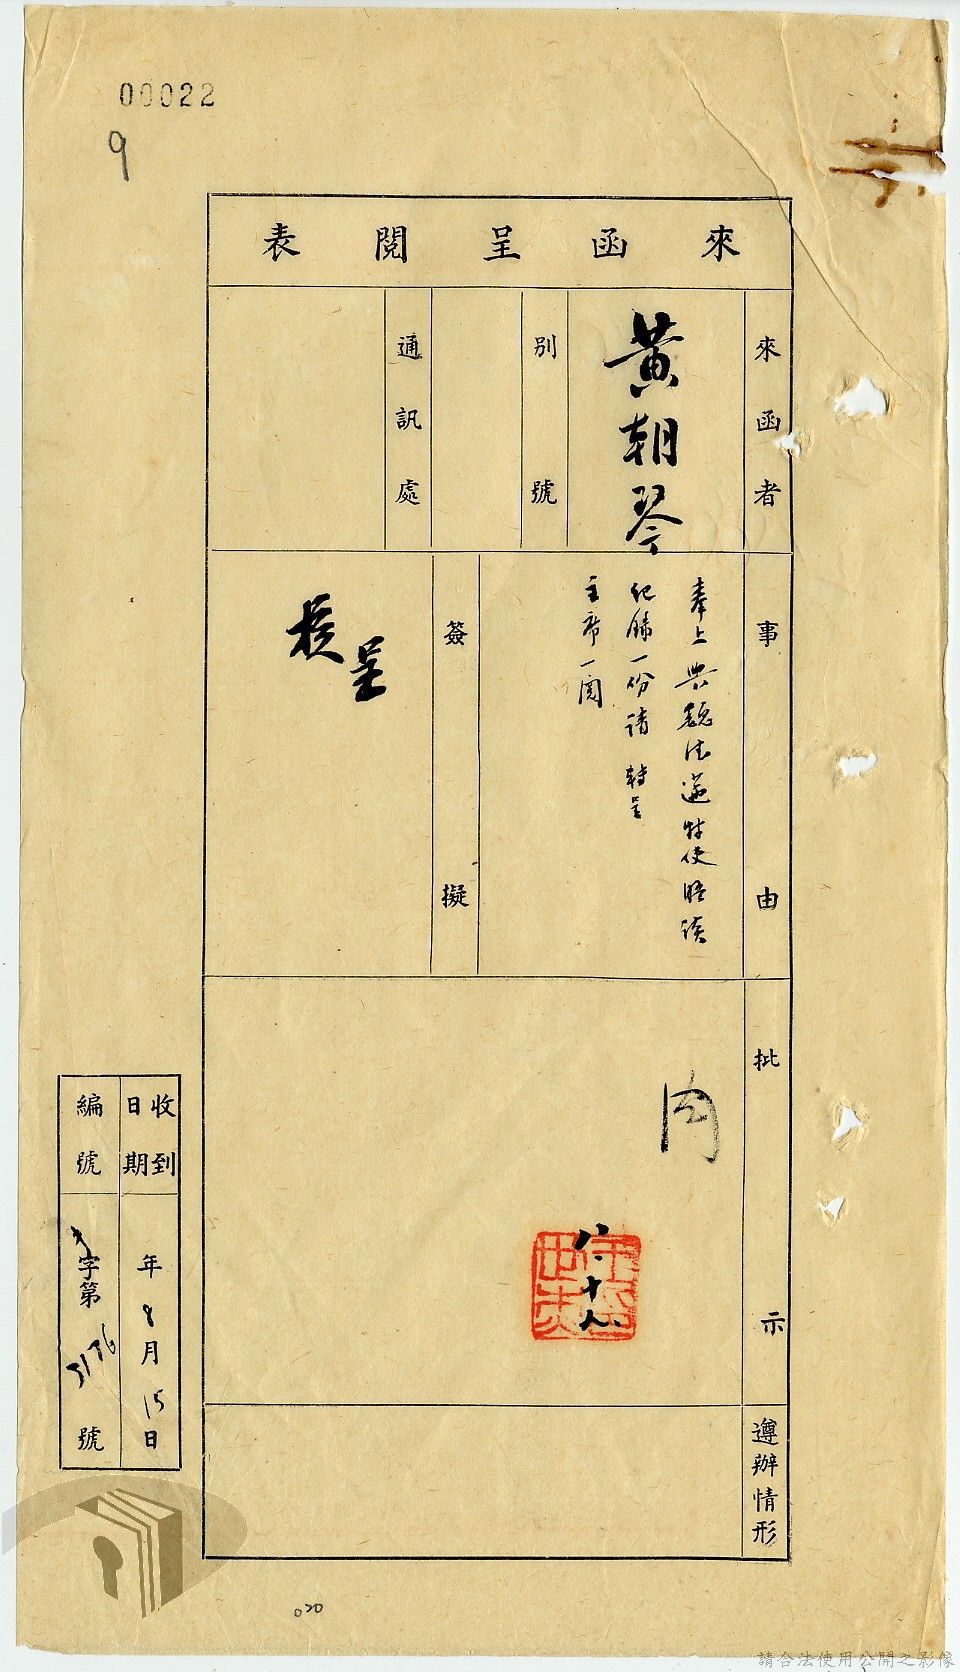 00022
9
來函呈閱表
來函者
黃朝琴
別號
通訊處
事由
奉上與魏德邁特使晤談
紀錄一份請 轉呈
主席一閱
簽擬
呈
核
批示
閱
八、十八
遵辦情形
收到日期
年8月15日
編號
字第3176號
020
請合法使用公開之影像